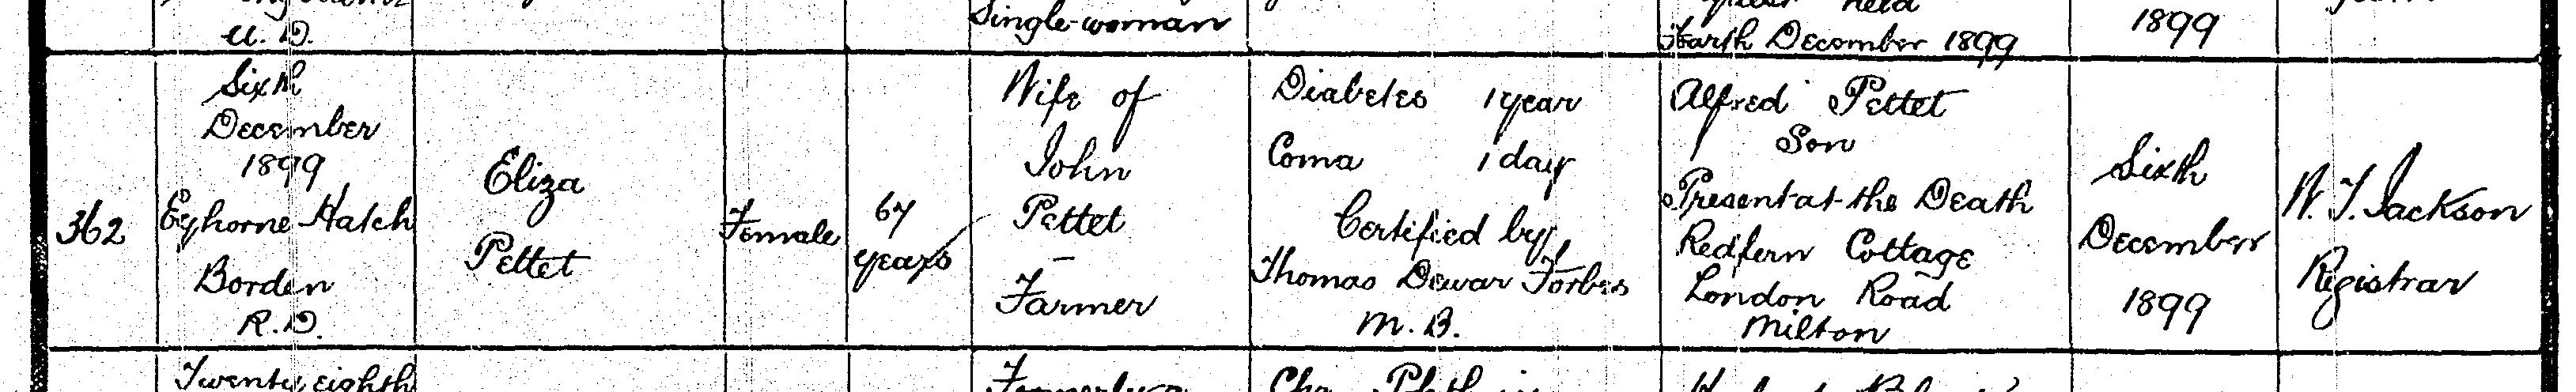 U. D.
Single-woman
held
December 1899
1899
362
Sixth
December
1899
Eyhorne Hatch
Borden
R.D.
Eliza
Pettet
Female
67
years
Wife of
John
Pettet
Farmer
Diabetes 1 year
Coma 1 day
Certified by
Thomas Dewar Forbes
M.B.
Alfred Pettet
Son
Present at the Death
Redfern Cottage
London Road
Milton
Sixth
December
1899
Jackson
Registrar
Twenty eighth